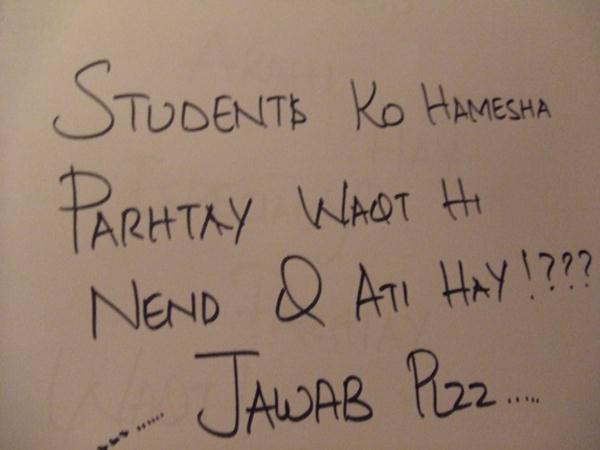 STUDENTS KO HAMESHA
PARHTAY WAQT HI
NEND Q ATI HAY!???
JAWAB PLZZ.....